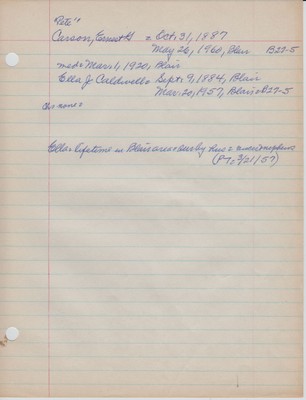 "Pete"
Carson, Ernest G = Oct. 31, 1887
May 26, 1960, Blair B27-5
med = Mar. 1, 1920, Blair
Ella J Caldwell = Sept. 9, 1884, Blair
Mar. 20, 1957, Blair = B27-5
chs none =
Ella = lifetime in Blair area = surv by hus =
(PT = 3/21/57)